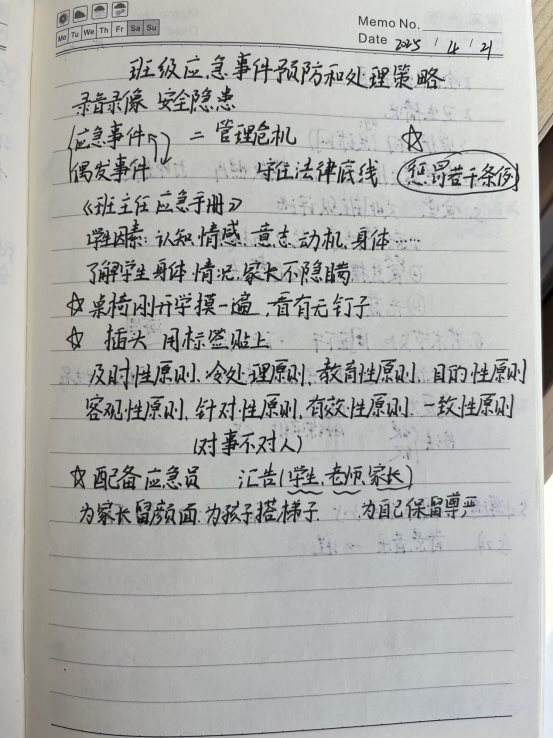 Memo No.
Mo Tu We Th Fr Sa Su
Date 2025 / 4 / 21
班级应急事件预防和处理策略
录音录像 安全隐患
应急事件 = 管理危机 ☆
偶发事件 守住法律底线 惩罚若干条例
《班主任应急手册》
学生因素：认知、情感、意志、动机、身体……
了解学生身体情况，家长不隐瞒
☆ 桌椅刚开学摸一遍，看有无钉子
☆ 插头 用标签贴上
及时性原则、冷处理原则、教育性原则、目的性原则
客观性原则，针对性原则，有效性原则、一致性原则
(对事不对人)
☆ 配备应急员 汇告(学生、老师、家长)
为家长留颜面 为孩子搭梯子 为自己保留尊严